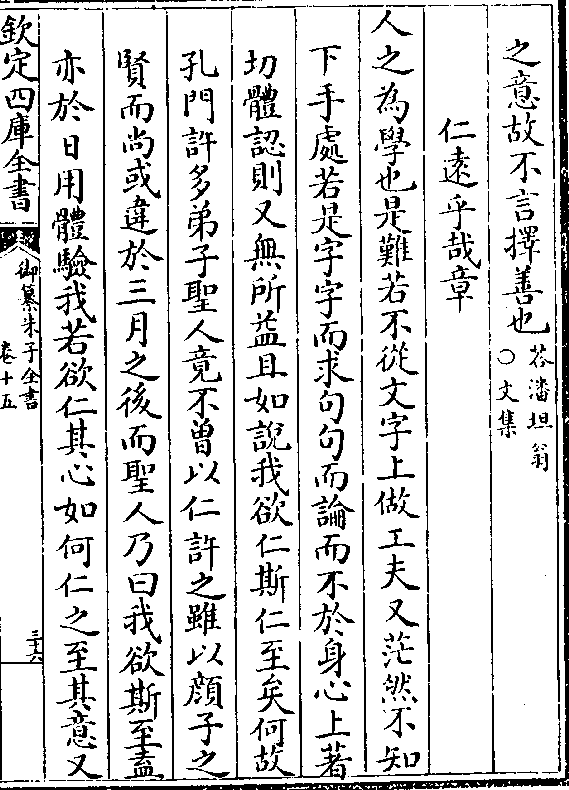 之意故不言擇善也答潘坦翁
○文集
仁遠乎哉章
人之為學也是難若不從文字上做工夫又茫然不知
下手處若是字字而求句句而論而不於身心上著
切體認則又無所益且如說我欲仁斯仁至矣何故
孔門許多弟子聖人竟不曾以仁許之雖以顔子之
賢而尚或違於三月之後而聖人乃曰我欲斯至盍
亦於日用體驗我若欲仁其心如何仁之至其意又
欽定四庫全書
御纂朱子全書
卷十五
三十六